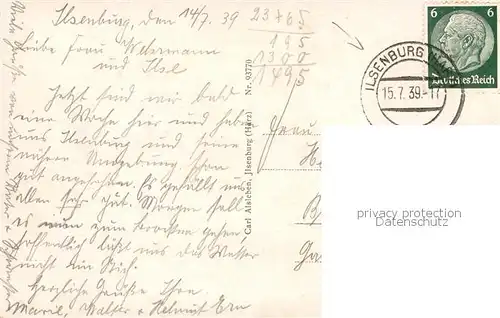 Ilsenburg, den 14/7. 39
23 + 65
195
1300
1495
Liebe Frau Wehrmann
und Ilse
Jetzt sind wir bald
eine Woche hier und haben
uns Ilsenburg und seine
nähere Umgebung schon
gut angesehen. Es gefällt uns
allen sehr gut. Morgen soll
es zum Brocken gehen,
hoffentlich läßt uns das Wetter
nicht im Stich.
Herzliche Grüße Ihre
Marie, Walter + Helmut
Viele Grüße von
Carl Alsleben, Ilsenburg (Harz) Nr. 93770
Frau
6
Deutsches Reich
ILSENBURG
15.7.39.-17
privacy protection
Datenschutz